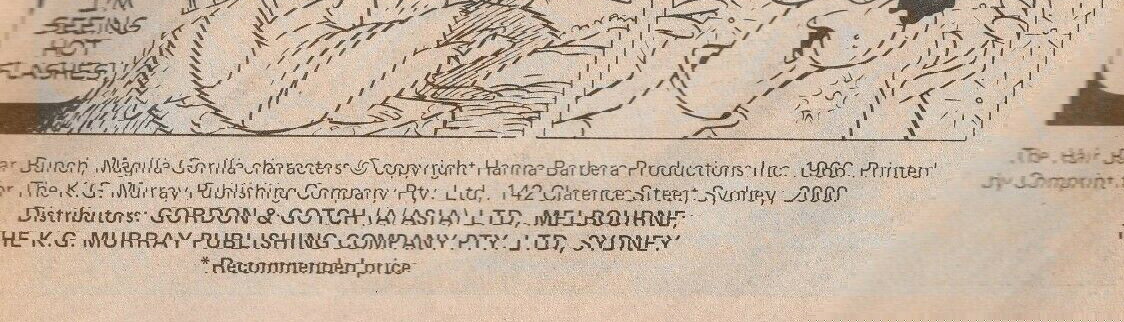 I'M
SEEING
HOT
FLASHES!
Bunch, Magilla Gorilla characters © copyright Hanna Barbera Productions Inc. 1966. Printed
The K.G. Murray Publishing Company Pty. Ltd., 142 Clarence Street Sydney 2000
Distributors: GORDON & GOTCH (A/ASIA) LTD, MELBOURNE,
THE K.G. MURRAY PUBLISHING COMPANY PTY. LTD, SYDNEY
*Recommended price